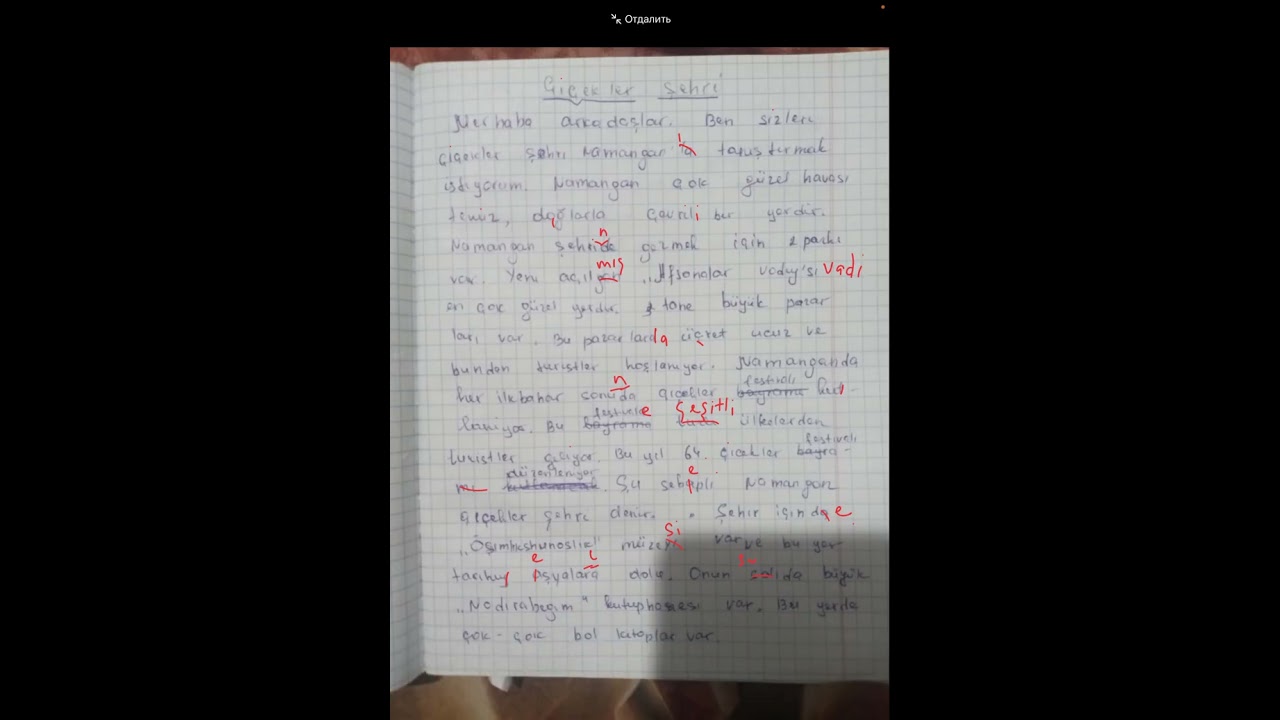 Отдалить
Çiçekler Şehri
Merhaba arkadaşlar. Ben sizlere
çiçekler şehri Namangan'ı tanıştırmak
istiyorum. Namangan çok güzel havası
temiz, dağlarla çevrili bir yerdir.
Namangan şehrinde gezmek için 2 parkı
var. Yeni açılmış „Afsonalar vodiy'si vadi
en çok güzel yerdir. 2 tane büyük pazar
ları var. Bu pazarlarda ücret ucuz ve
bundan turistler hoşlanıyor. Namanganda
her ilkbahar sonunda çiçekler festivali kut-
lanıyor. Bu festivale çeşitli ülkelerden
turistler geliyor. Bu yıl 64. çiçekler festivali
düzenleniyor. Şu sebepli Namangan
çiçekler şehri denir. Şehir içinde
„Osimlikshunoslik" müzesi var ve bu yer
tarihi eşyalarla dolu. Onun da büyük
„Nodirabegim" kutuphanesi var. Bu yerde
çok-çok bol kitaplar var.